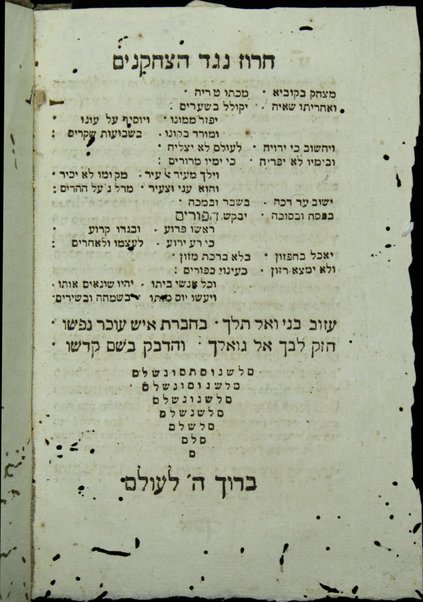 חרוז נגד הצחקנים
מצחק בקוביא · מכתו טריה ·
ואחריתו שאיה · יקולל בשערים :
יפזר ממונו · ויוסיף על עונו
ומורד בקונו · בשבועות שקרים :
ויחשוב כי ירויח · לעולם לא יצליח ·
ובימיו לא יפריח · כי ימיו מרורים :
וילך מעיר לעיר · מקומו לא יכיר ·
והוא עני וצעיר · מדלג על ההרים :
ישוב עד דכה · בשבר ובמכה ·
בפסח ובסוכה · יבקש הפורים
ראשו פרוע · ובגדו קרוע
כי רע ירוע · לעצמו ולאחרים :
יאכל בחפזון · בלא ברכת מזון ·
ולא ימצא רזון · כעינוי כפורים :
וכל אנשי ביתו · יהיו שונאים אותו ·
ויעשו יום מותו · בשמחה ובשירים ·
עזוב בני ואל תלך · בחברת איש עוכר נפשו
חזק לבך אל גואלך · והדבק בשם קדשו
ם
ברוך ה' לעולם